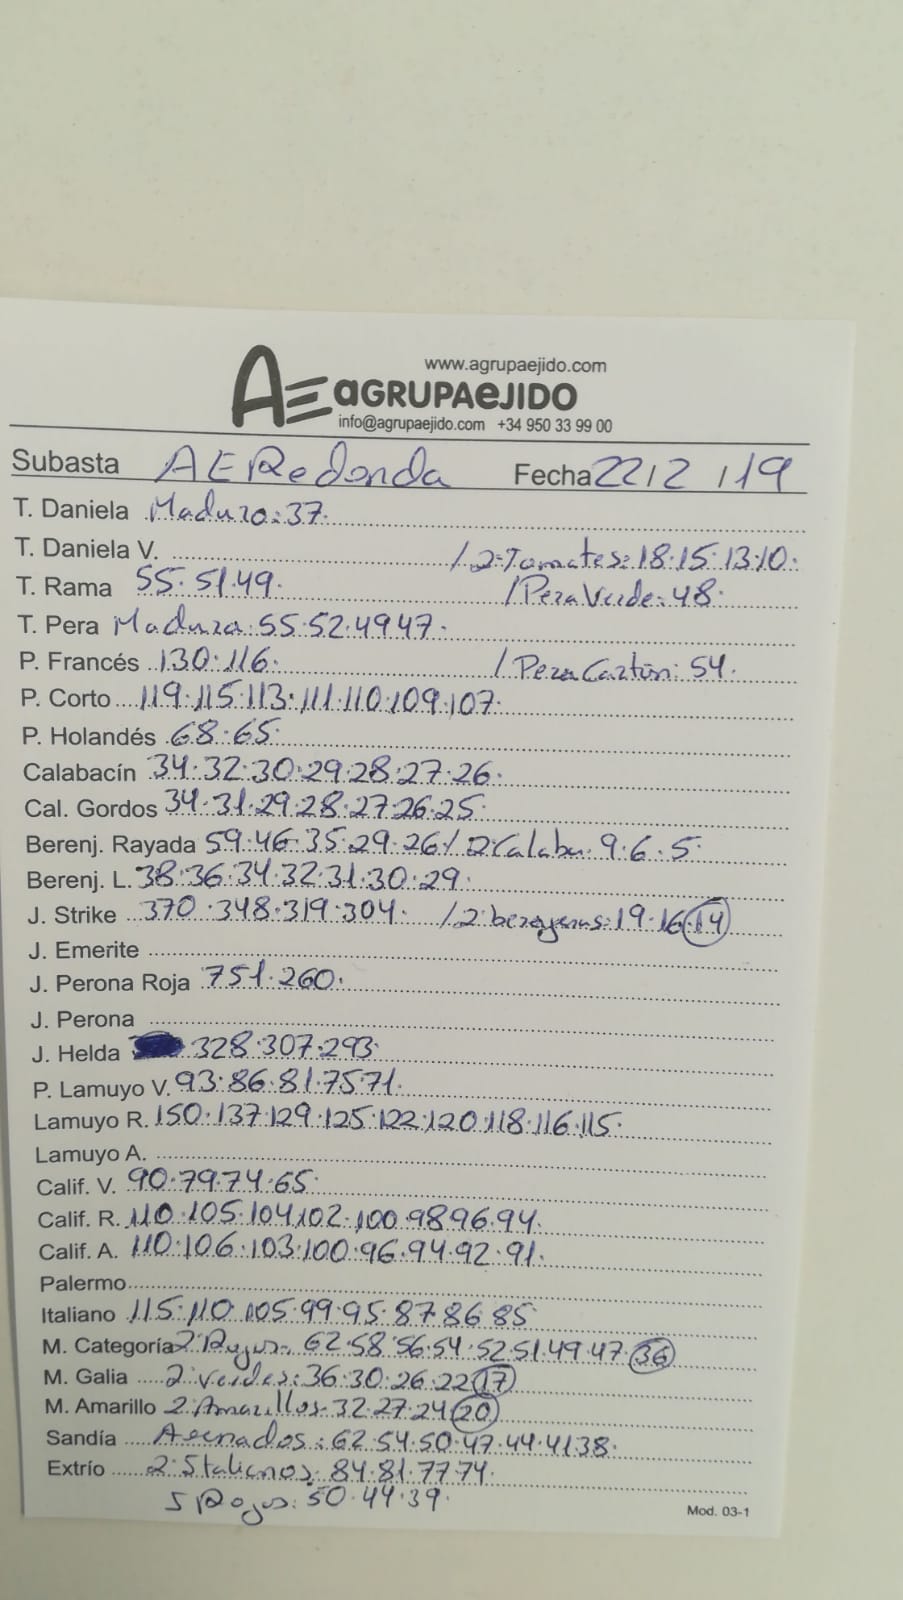 www.agrupaejido.com
AE aGRUPAeJIDO
info@agrupaejido.com +34 950 33 99 00
Subasta AERedonda Fecha 22/2/19
T. Daniela Maduro: 37.
T. Daniela V. / 2ª Tomates: 18·15·13·10.
T. Rama 55·51·49. / Pera Verde: 48.
T. Pera Madura: 55·52·49 47.
P. Francés 130·116. / Pera Cartón: 54.
P. Corto 119·115·113·111·110·109·107.
P. Holandés 68·65.
Calabacín 34·32·30·29·28·27·26.
Cal. Gordos 34·31·29·28·27·26·25.
Berenj. Rayada 59·46·35·29·26 / 2ªCalaba. 9·6·5.
Berenj. L. 38·36·34·32·31·30·29.
J. Strike 370·348·319·304. / 2ª berenjenas: 19·16·14
J. Emerite
J. Perona Roja 751·260.
J. Perona
J. Helda 328·307·293.
P. Lamuyo V. 93·86·81·75·71.
Lamuyo R. 150·137·129·125·122·120·118·116·115.
Lamuyo A.
Calif. V. 90·79·74·65.
Calif. R. 110·105·104·102·100·98 96·94.
Calif. A. 110·106·103·100·96·94·92·91.
Palermo
Italiano 115·110·105·99·95·87·86·85.
M. Categoría 2ª Rojos: 62·58·56·54·52·51·49·47·36
M. Galia 2ª verdes: 36·30·26·22·17
M. Amarillo 2ª Amarillos 32·27·24·20
Sandía Asurnados: 62·54·50·47·44·41 38.
Extrío 2ª Italianos: 84·81·77·74.
5 Rojos: 50·44·39.
Mod. 03-1